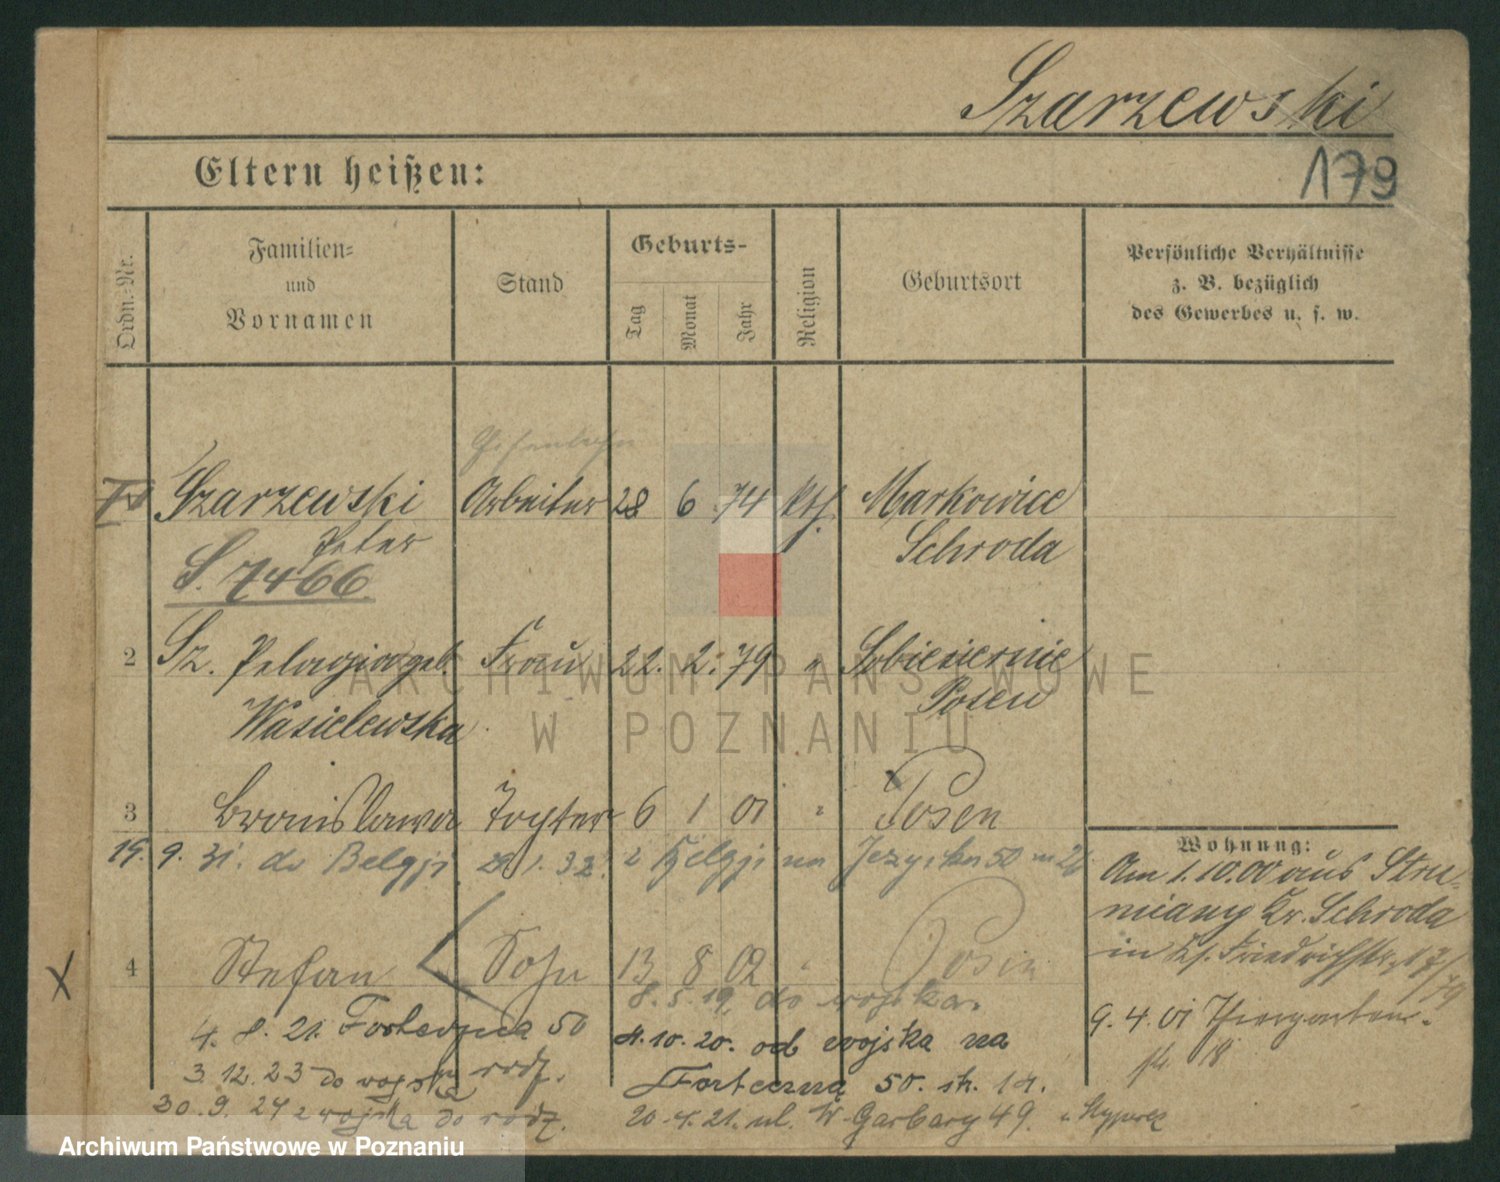 Szarzewski
Eltern heißen:
179
Ordn.-Nr.
Familien-
und
Vornamen
Stand
Geburts-
Tag
Monat
Jahr
Religion
Geburtsort
Persönliche Verhältnisse
z. B. bezüglich
des Gewerbes u. s. w.
Szarzewski Arbeiter 28 6 74 kth. Markowice
Peter Schroda
S. 7466
2 Sz. Pelagia geb. Frau 22. 2. 79 "
Wasielewska Posen
3 Bronislawa Tochter 6 1 01 " Posen
19. 9. 31. do Belgji 29. 1. 32. z Belgji na 50 m
4 Stefan Sohn 13 8 02 " Posen
8. 5. 19. do wojska.
4. 8. 21. Forteczna 50
3. 12. 23 do wojska rodz.
30. 9. 24 z wojska do rodz.
10. 20. od wojska na
Forteczna 50. 14.
20. 4. 21. ul. W. Garbary 49.
Wohnung:
Am 1.10.00 aus Stru-
miany Kr. Schroda
in
9. 4. 01 Thiergarten-
18
ARCHIWUM PAŃSTWOWE
W POZNANIU
X
Archiwum Państwowe w Poznaniu